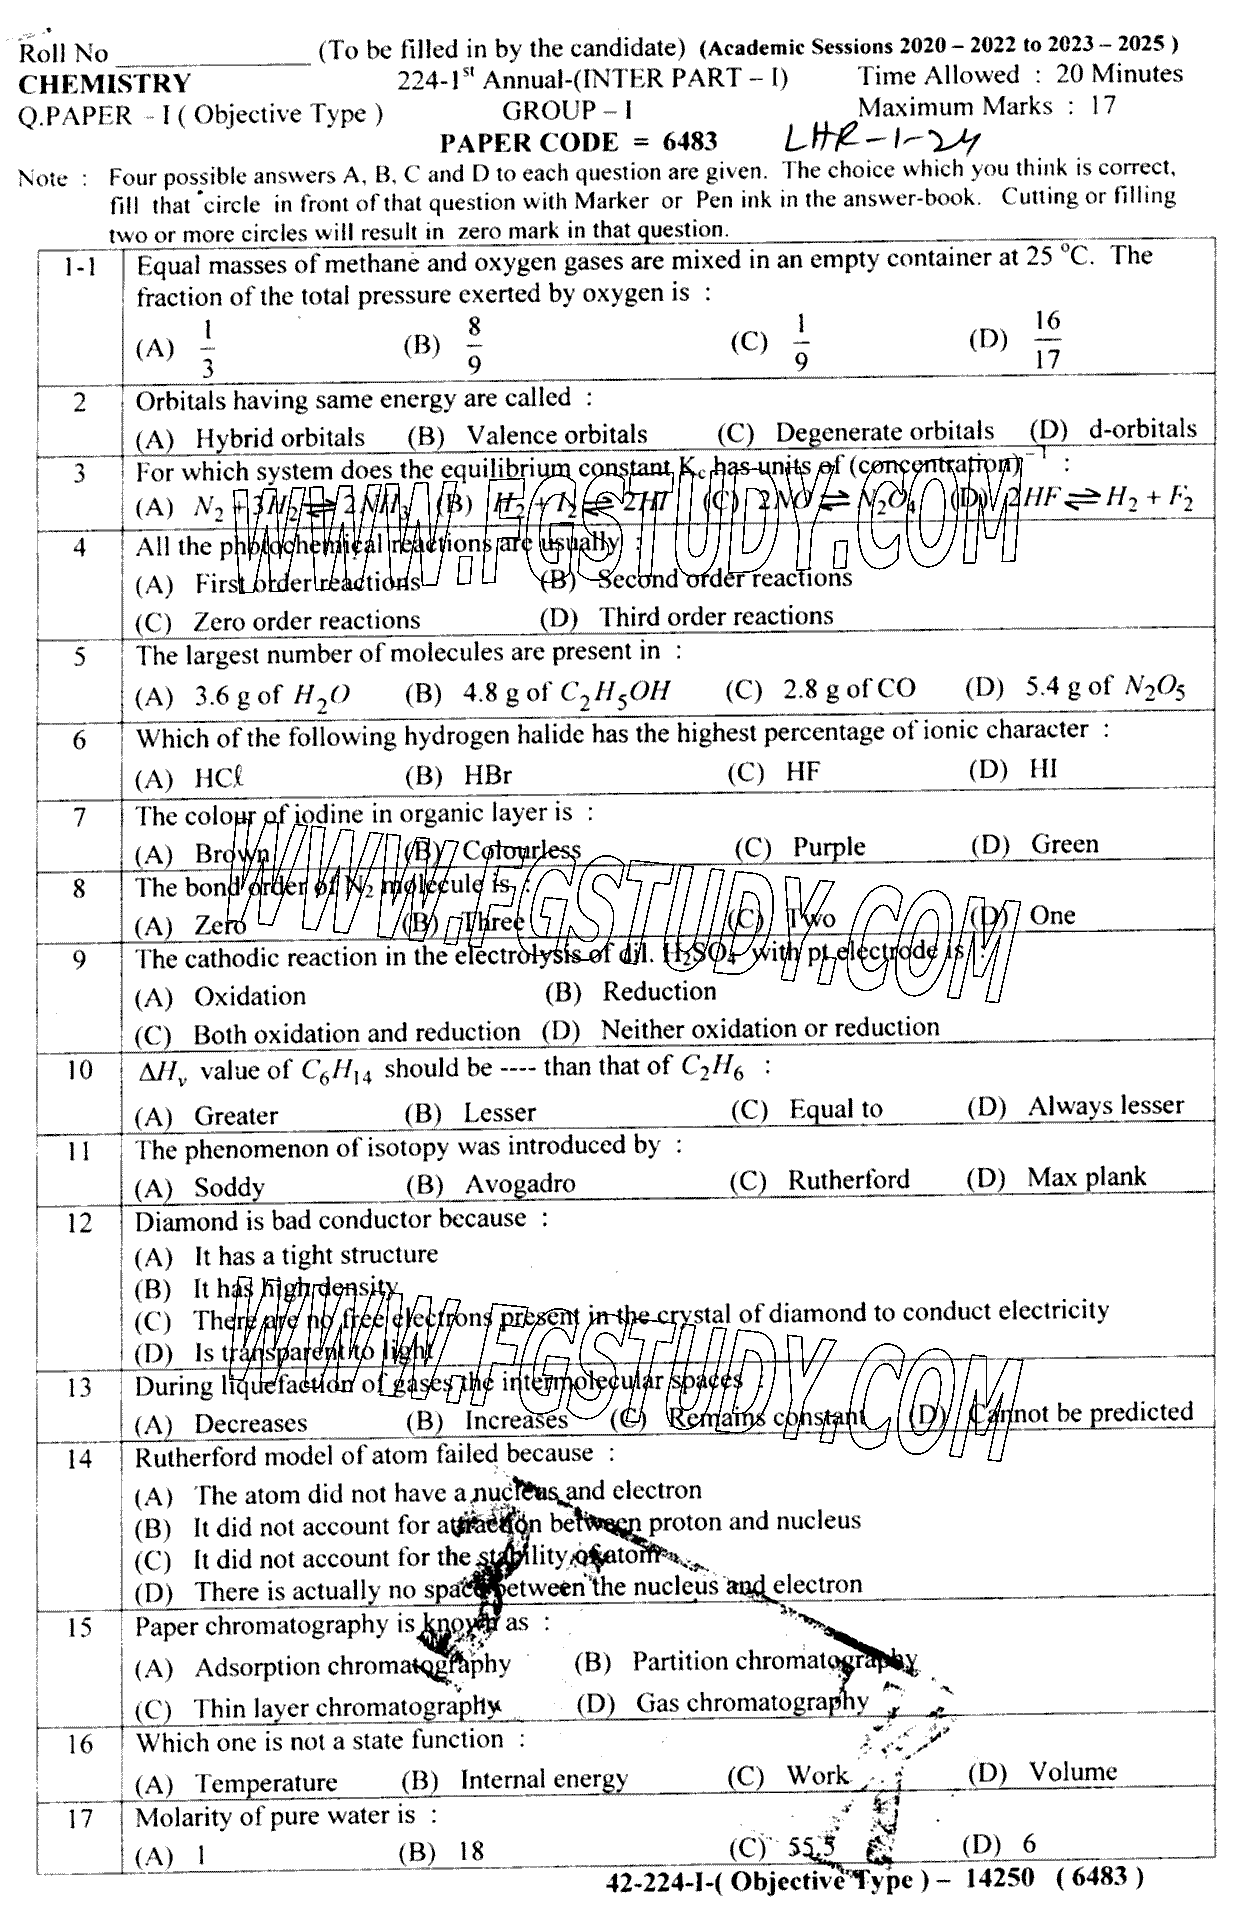 Roll No ____________ (To be filled in by the candidate) (Academic Sessions 2020 – 2022 to 2023 – 2025 )
CHEMISTRY 224-1st Annual-(INTER PART – I) Time Allowed : 20 Minutes
Q.PAPER – I ( Objective Type ) GROUP – I Maximum Marks : 17
PAPER CODE = 6483 LHR-1-24
Note : Four possible answers A, B, C and D to each question are given. The choice which you think is correct,
fill that circle in front of that question with Marker or Pen ink in the answer-book. Cutting or filling
two or more circles will result in zero mark in that question.
1-1 Equal masses of methane and oxygen gases are mixed in an empty container at 25 °C. The
fraction of the total pressure exerted by oxygen is :
(A) 1/3 (B) 8/9 (C) 1/9 (D) 16/17
2 Orbitals having same energy are called :
(A) Hybrid orbitals (B) Valence orbitals (C) Degenerate orbitals (D) d-orbitals
3 For which system does the equilibrium constant Kc has units of (concentration)⁻¹ :
(A) N₂ + 3H₂ ⇌ 2NH₃ (B) H₂ + I₂ ⇌ 2HI (C) 2NO ⇌ N₂O₄ (D) 2HF ⇌ H₂ + F₂
WWW.FGSTUDY.COM
4 All the photochemical reactions are usually :
(A) First order reactions (B) Second order reactions
(C) Zero order reactions (D) Third order reactions
5 The largest number of molecules are present in :
(A) 3.6 g of H₂O (B) 4.8 g of C₂H₅OH (C) 2.8 g of CO (D) 5.4 g of N₂O₅
6 Which of the following hydrogen halide has the highest percentage of ionic character :
(A) HCℓ (B) HBr (C) HF (D) HI
7 The colour of iodine in organic layer is :
(A) Brown (B) Colourless (C) Purple (D) Green
WWW.FGSTUDY.COM
8 The bond order of N₂ molecule is :
(A) Zero (B) Three (C) Two (D) One
9 The cathodic reaction in the electrolysis of dil. H₂SO₄ with pt electrode is :
(A) Oxidation (B) Reduction
(C) Both oxidation and reduction (D) Neither oxidation or reduction
10 ΔHᵥ value of C₆H₁₄ should be ---- than that of C₂H₆ :
(A) Greater (B) Lesser (C) Equal to (D) Always lesser
11 The phenomenon of isotopy was introduced by :
(A) Soddy (B) Avogadro (C) Rutherford (D) Max plank
12 Diamond is bad conductor because :
(A) It has a tight structure
(B) It has high density
(C) There are no free electrons present in the crystal of diamond to conduct electricity
(D) Is transparent to light
WWW.FGSTUDY.COM
13 During liquefaction of gases the intermolecular spaces :
(A) Decreases (B) Increases (C) Remains constant (D) Cannot be predicted
14 Rutherford model of atom failed because :
(A) The atom did not have a nucleus and electron
(B) It did not account for attraction between proton and nucleus
(C) It did not account for the stability of atom
(D) There is actually no space between the nucleus and electron
15 Paper chromatography is known as :
(A) Adsorption chromatography (B) Partition chromatography
(C) Thin layer chromatography (D) Gas chromatography
16 Which one is not a state function :
(A) Temperature (B) Internal energy (C) Work (D) Volume
17 Molarity of pure water is :
(A) 1 (B) 18 (C) 55.5 (D) 6
42-224-I-( Objective Type ) – 14250 ( 6483 )